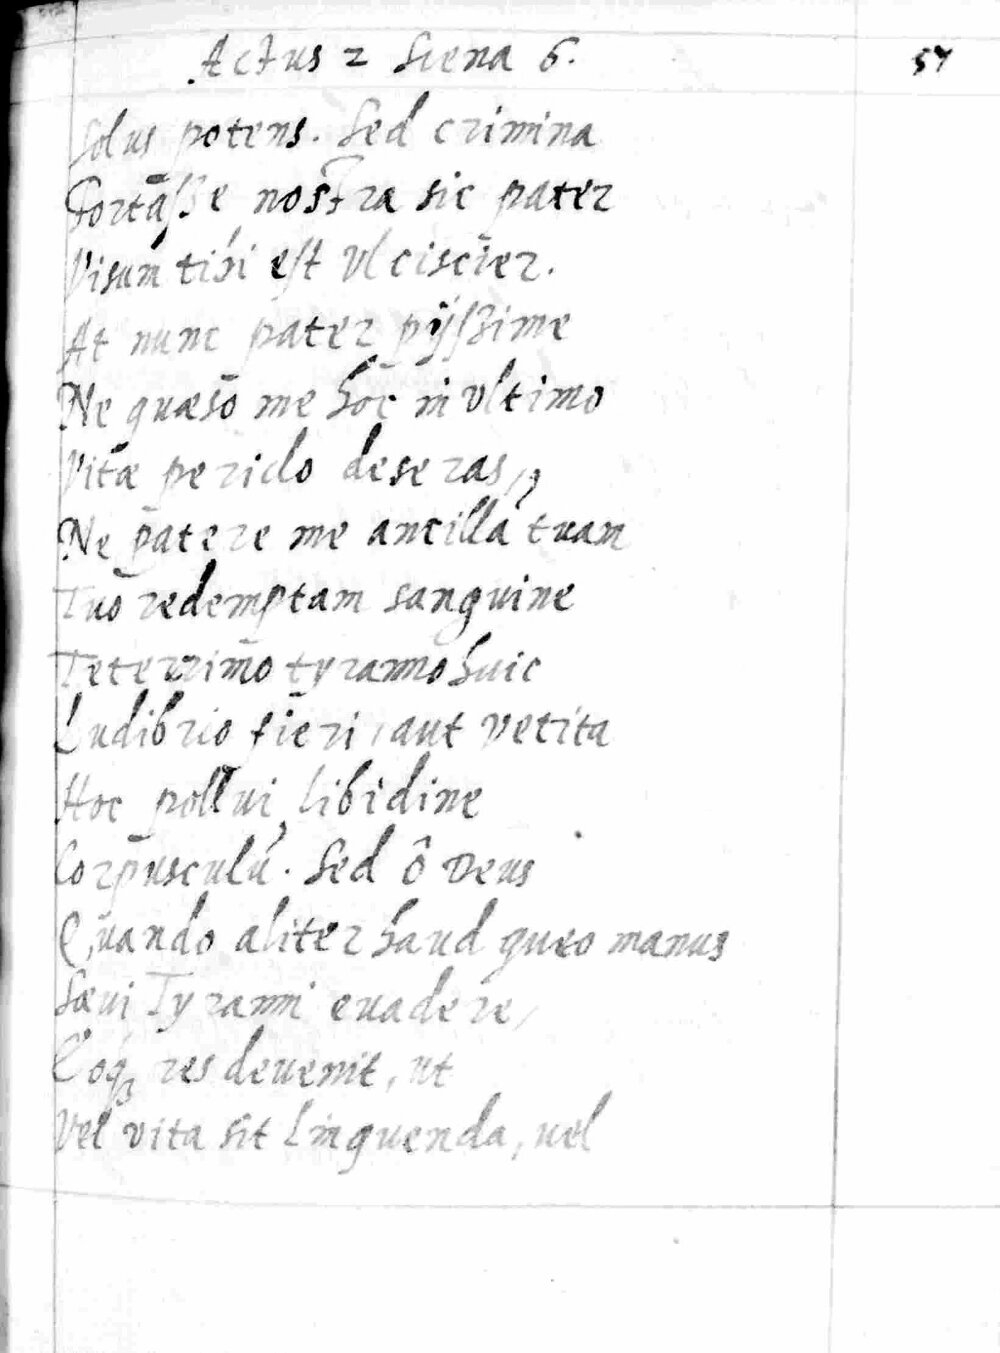 Actus 2 Scena 6.
57
Solus potens. Sed crimina
Fortasse nostra sic pater
Visum tibi est Vlciscier.
At nunc pater pijssime
Ne quæso me hoc in vltimo
Vitæ periclo deseras,
Ne patere me ancillã tuam
Tuo redemptam sanguine
Teterrimo tyranno huic
Ludibrio fieri, aut vetita
Hoc pollui libidine
Corpusculũ. Sed ô Deus
Quando aliter haud queo manus
Sævi Tyranni euadere,
Eoqꝫ res deuenit, ut
Vel vita sit linquenda, uel